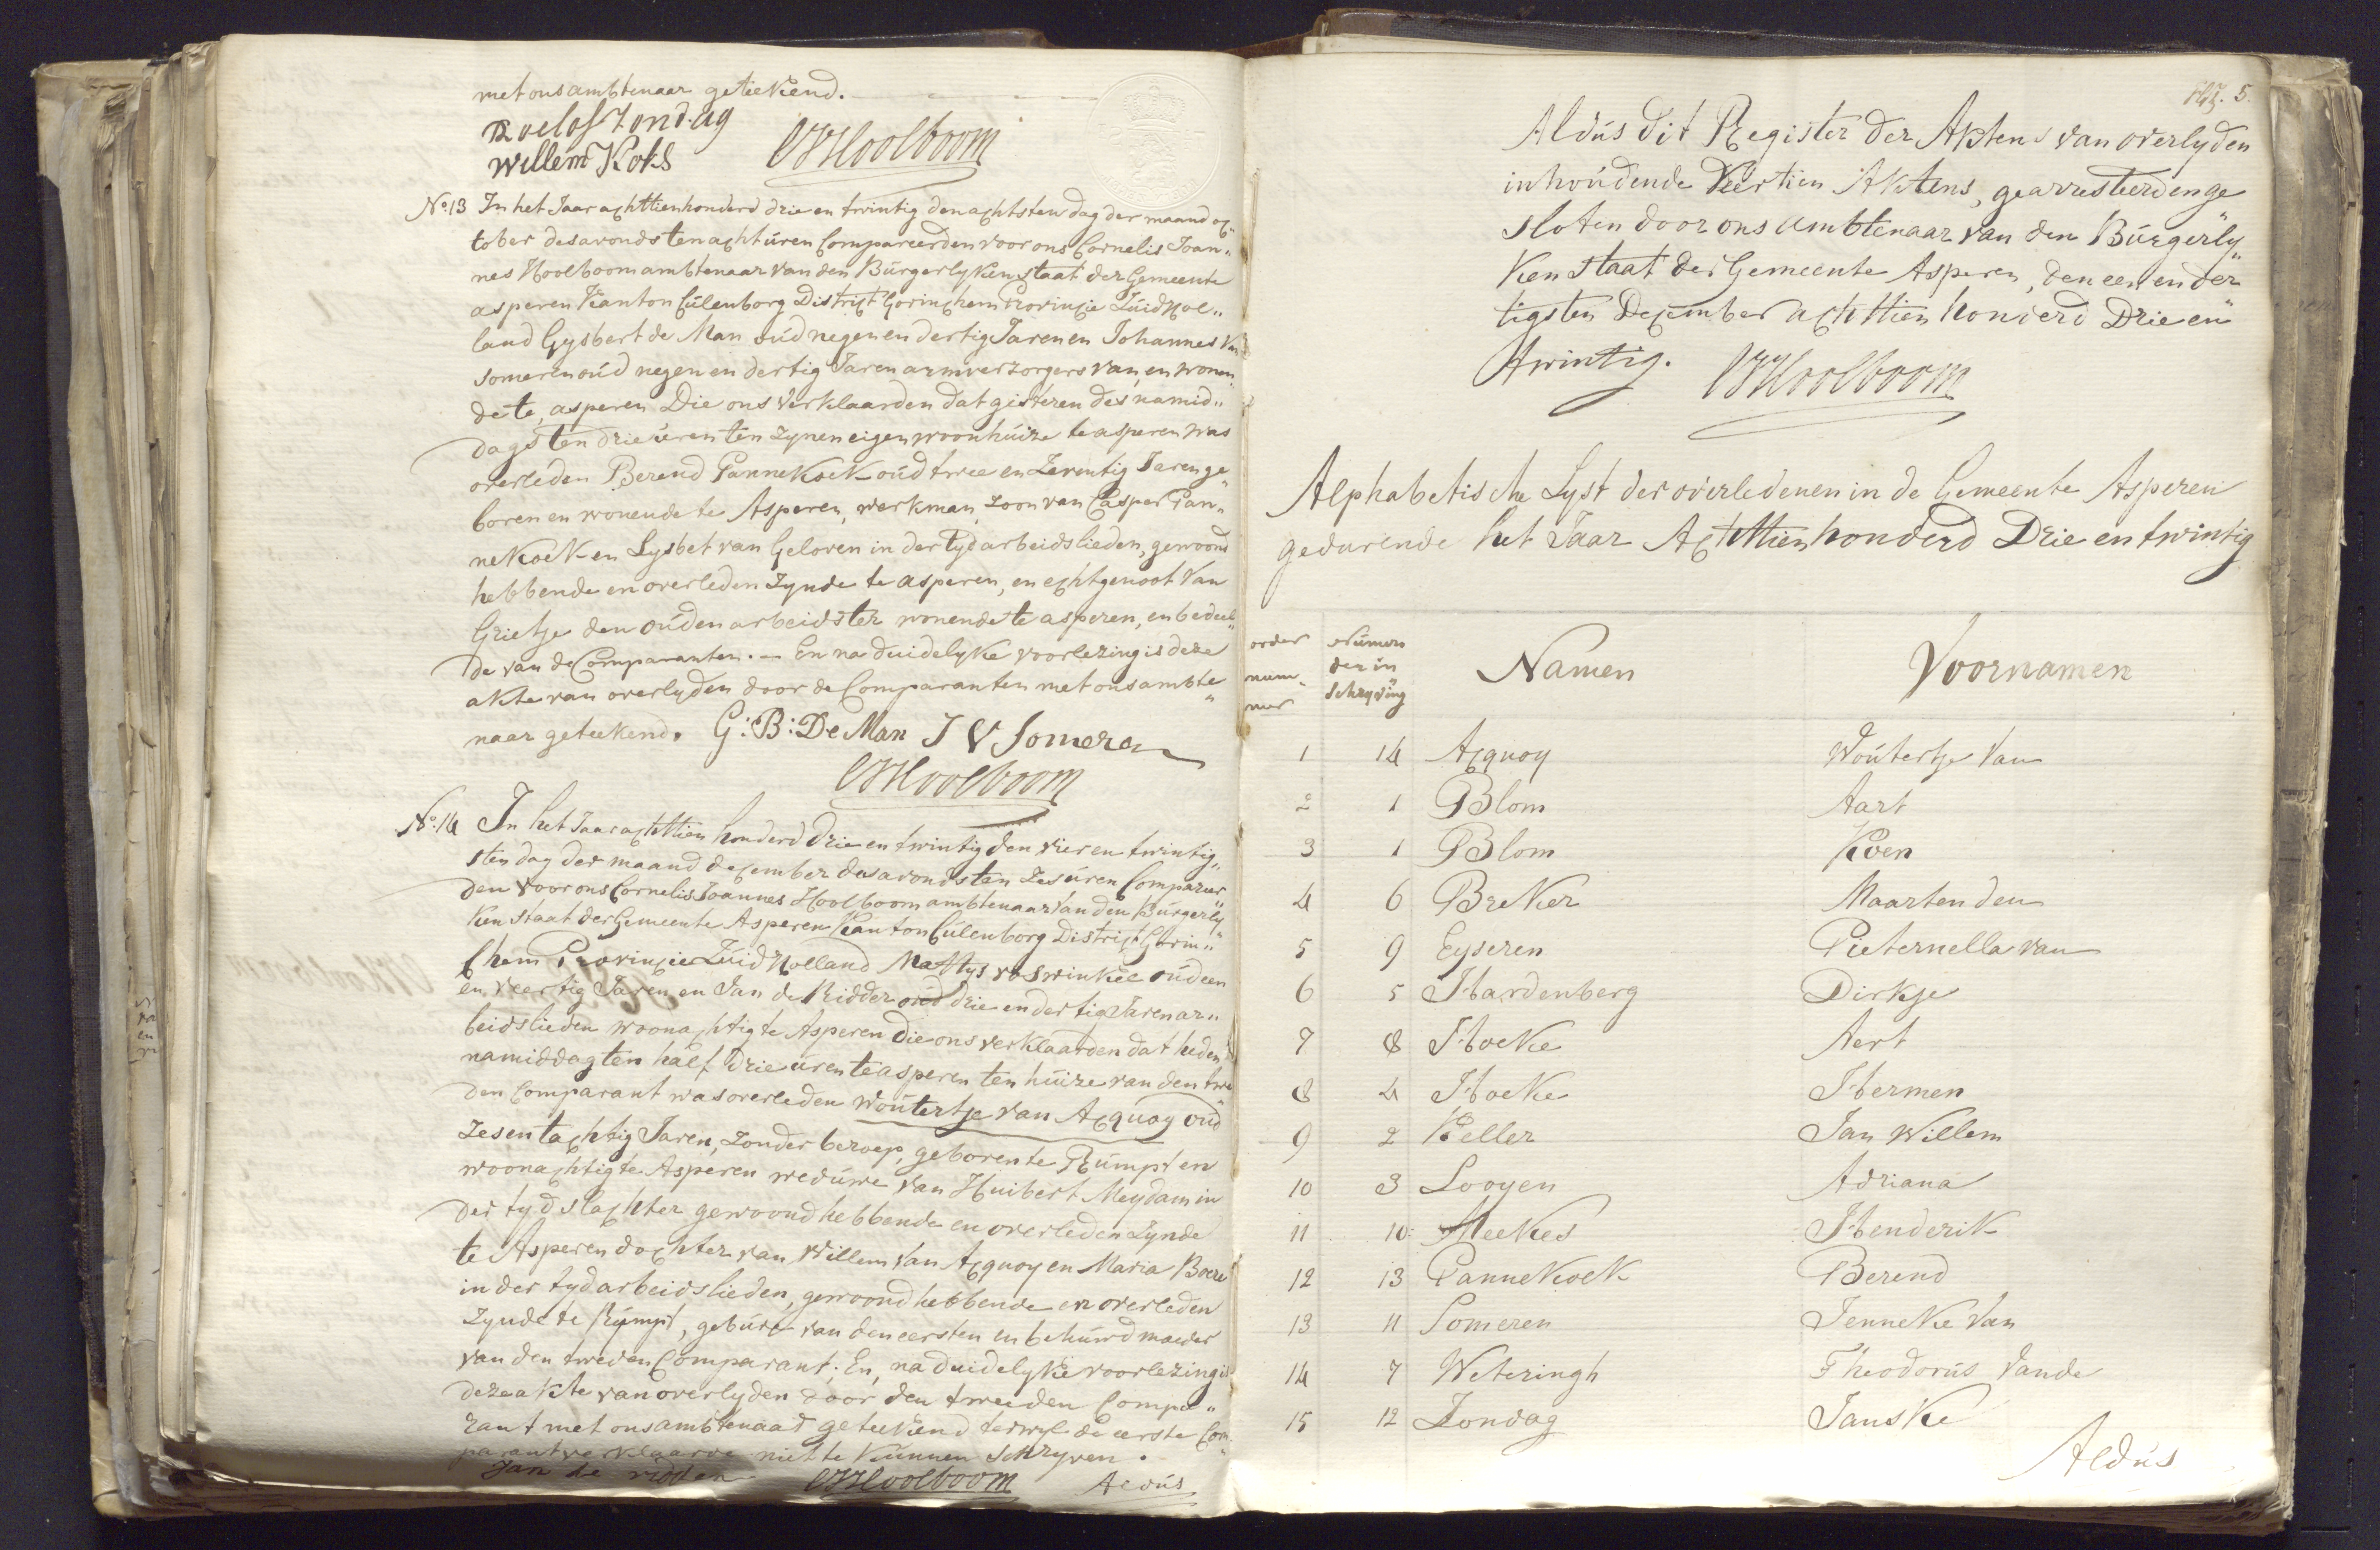 met ons ambtenaar geteekend.
Roelof Zondag
Willem Koks CJHoolboom
No. 13 In het Jaar achttienhonderd drie en twintig den achtsten dag der maand oc„
tober des avonds ten acht úren Compareerden voor ons Cornelis Joan„
nes Hoolboom ambtenaar van den Búrgerlyken staat der Gemeente
asperen Kanton Cúlenborg District Gorinchem Provincie Zúid Hol„
land Gysbert de Man oúd negen en dertig Jaren en Johannes van
Someren oúd negen en dertig Jaren armverzorgers van, en wonen„
de te, asperen Die ons Verklaarden dat gisteren des namid„
dags ten drie úren ten zynen eigen woonhúize te asperen was
overleden Berend Pannekoek oúd twee en Zeventig Jaren ge„
boren en wonende te Asperen, werkman, zoon van Casper Pan„
nekoek en Lysbet van Geloven in der tyd arbeidslieden, gewoond
hebbende en overleden zynde te asperen, en echtgenoot van
Grietje den oúden arbeidster wonende te asperen, en bedeel„
de van de Comparanten. — En na duidelyke voorlezing is deze
akte van overlyden door de Comparanten met ons ambte„
naar geteekend. G: B: De Man J V Someren
CJHoolboom
No. 14 In het Jaar achttien honderd drie en twintig den vier en twintig„
sten dag der maand december des avonds ten Zes úren Compareer„
den voor ons Cornelis Joannes Hoolboom ambtenaar van den Búrgerly„
ken staat der Gemeente Asperen Kanton Cúlenborg District Gorin„
chem Provincie Zúid Holland Mattys voswinkel oúd een
en veertig Jaren en Jan de Ridder oúd drie en dertig Jaren ar„
beidslieden woonachtig te Asperen Die ons verklaarden dat heden
namiddag ten half drie úren te asperen ten húize van den twe„
den Comparant was overleden Woútertje van Acquoy oúd
zes en tachtig Jaren, zonder beroep, geboren te Rúmpt en
woonachtig te Asperen wedúwe van Húibert Meydam in
der tyd slachter gewoond hebbende en overleden zynde
te Asperen dochter van Willem van Acquoy en Maria Boere
in der tyd arbeidslieden, gewoond hebbende en overleden
zynde te Rúmpt, gebúre van den eersten en behúwdmoeder
van den tweden Comparant. En, na duidelyke voorlezing is
deze akte van overlyden door den tweeden Compa„
rant met ons ambtenaar geteekend terwyl de eerste Com„
parant verklaarde niet te kúnnen schryven.
Jan de ridder CJHoolboom Aldús
Blz. 5.
Aldús dit Register der Aktens van overlyden
inhoúdende Veertien Aktens, gearresteerd en ge„
sloten door ons ambtenaar van den Búrgerly„
ken staat der Gemeente Asperen, den een en der„
tigsten December achttien honderd Drie en
twintig. CJHoolboom
Alphabetische Lyst der overledenen in de Gemeente Asperen
gedurende het Jaar Achttien honderd Drie en twintig
order nummer Númers der inschryving Namen Voornamen
1 14 Acquoy Woútertje van
2 1 Blom Aart
3 1 Blom Koen
4 6 Breker Maarten den
5 9 Eyseren Pieternella van
6 5 Hardenberg Dirkje
7 8 Hoeke Aert
8 4 Hoeke Hermen
9 2 Keller Jan Willem
10 3 Looyen Adriana
11 10 Meekes Henderik
12 13 Pannekoek Berend
13 11 Someren Jenneke van
14 7 Weteringh Theodorús vande
15 12 Zondag Janske
Aldús